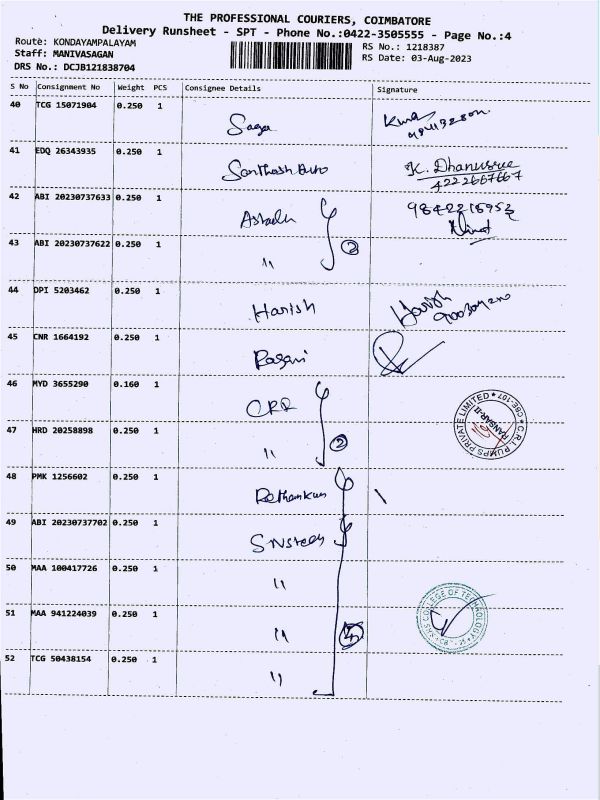 THE PROFESSIONAL COURIERS, COIMBATORE
Delivery Runsheet - SPT - Phone No.:0422-3505555 - Page No.:4
Route: KONDAYAMPALAYAM
Staff: MANIVASAGAN
DRS No.: DCJB121838704
RS No.: 1218387
RS Date: 03-Aug-2023
S No Consignment No Weight PCS Consignee Details Signature
40 TCG 15071904 0.250 1
41 EDQ 26343935 0.250 1 K. Dhanusree
4222667667
42 ABI 20230737633 0.250 1 9842218953
43 ABI 20230737622 0.250 1 " 2
44 DPI 5203462 0.250 1 Harish Harish
45 CNR 1664192 0.250 1
46 MYD 3655290 0.160 1
C.R.I. PUMPS PRIVATE LIMITED * CBE-107 *
47 HRD 20258898 0.250 1 " 2
48 PMK 1256602 0.250 1
49 ABI 20230737702 0.250 1
50 MAA 100417726 0.250 1 "
COLLEGE OF TECHNOLOGY
51 MAA 941224039 0.250 1 "
52 TCG 50438154 0.250 1 "